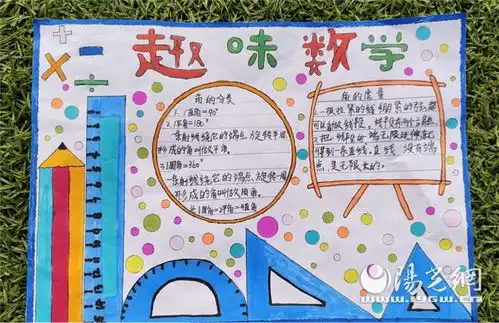 趣味数学
角的分类
1.1直角=90°
2.1平角=180°
一条射线绕它的端点,旋转半周
形成的角叫做平角。
3.1周角=360°
一条射线绕它的端点,旋转一周
形成的角叫做周角。
1周角=2平角=4直角
角的度量
1.一根拉紧的线,绷紧的弦,都
可以看做线段,线段有两个端点。
2.把线段的一端无限延伸,
得到一条直线,直线没有端
点,是无限长的。
陽光網
www.iygw.cn